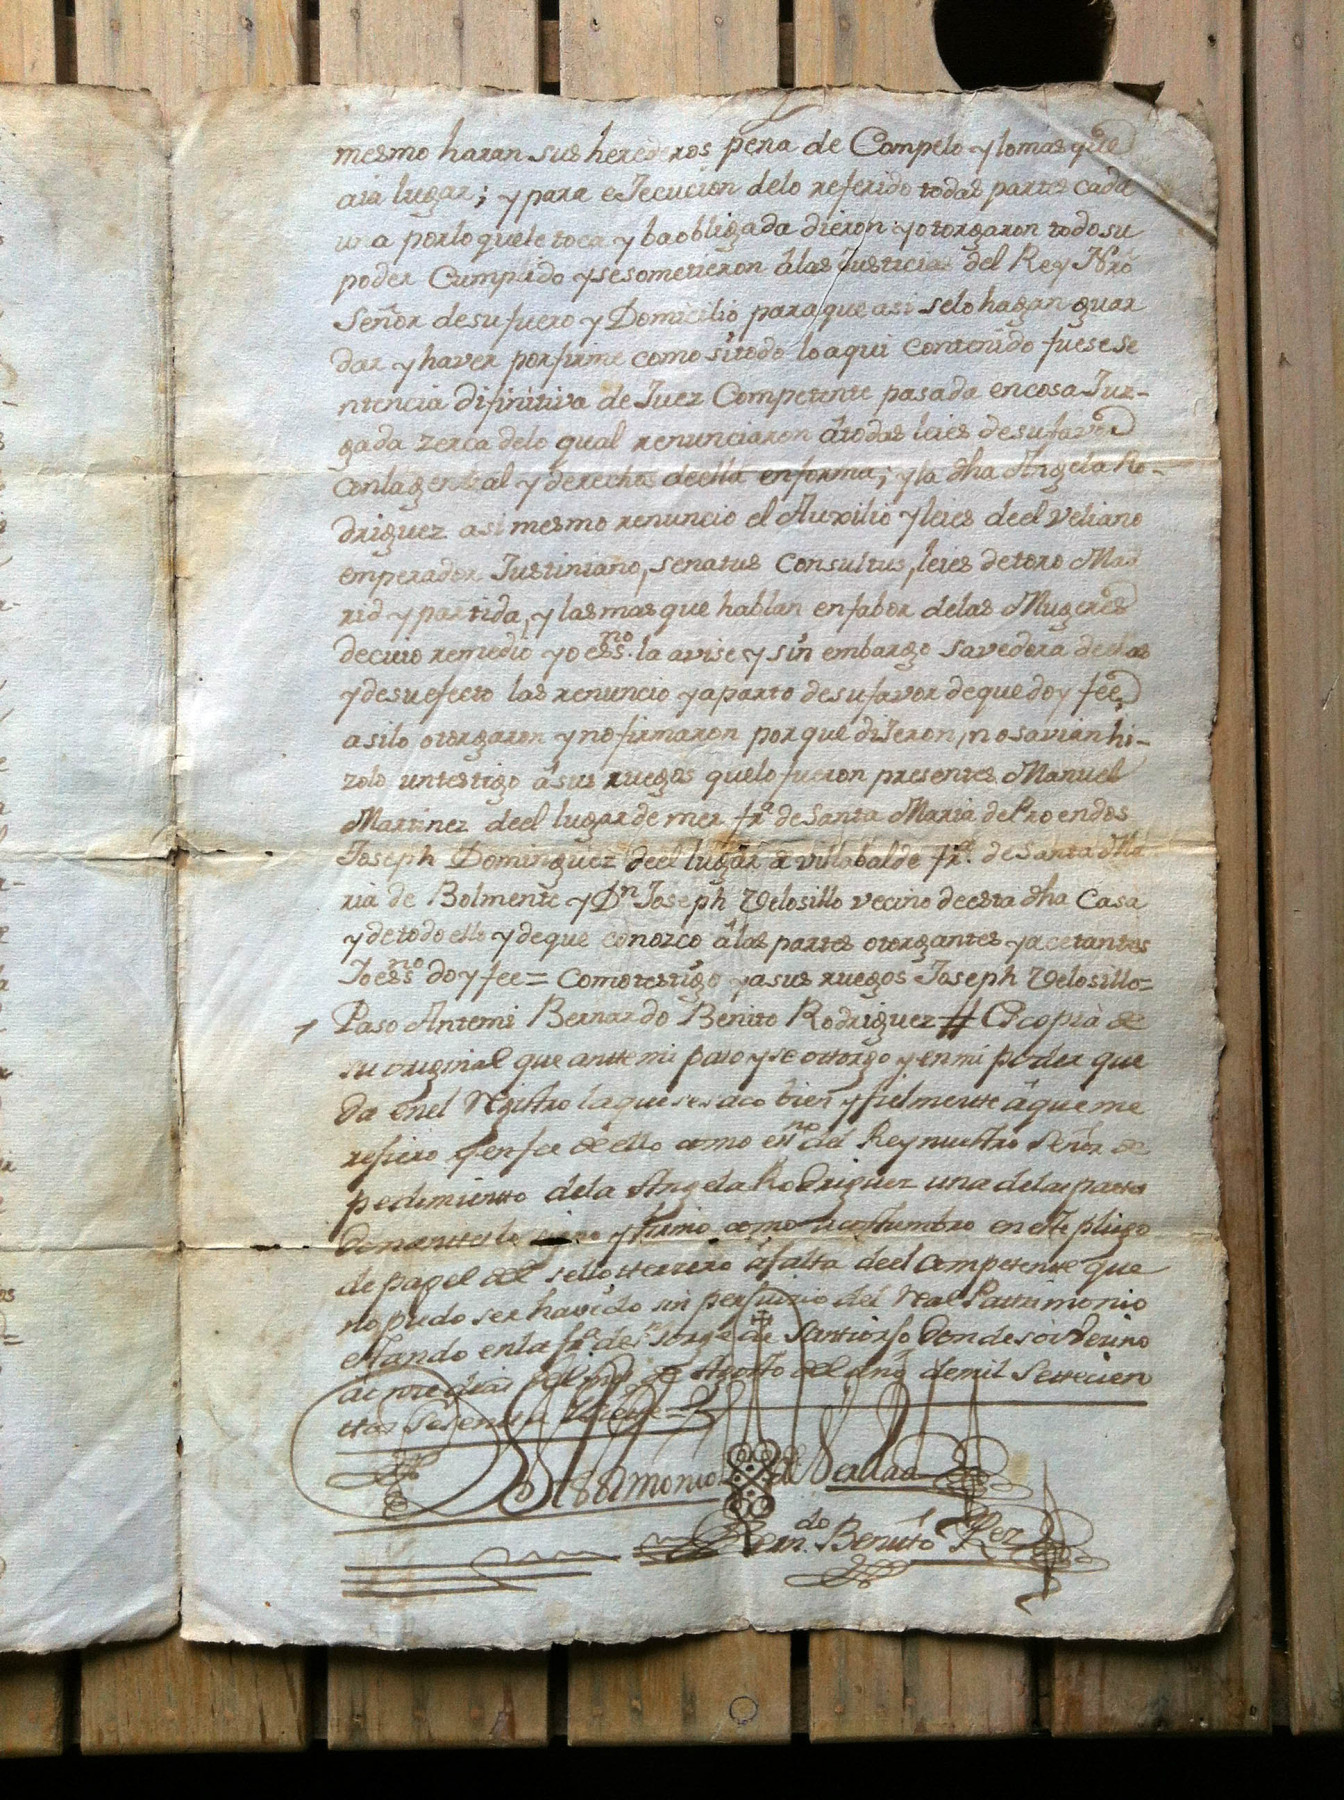 mesmo haran sus herederos pena de Compelo y lomas que
aia lugar; y para eJecucion delo referido todas partes cada
una porloquele toca y ba obligada dieron y otorgaron todo su
poder Cumplido y sesometieron á las Justicias del Rey Nro
Señor desu fuero y Domicilio paraque asi selo hagan guar
dar y haver porfirme como si todo lo aqui Contenido fuese se
ntencia difinitiva de Juez Competente pasada encosa Juz-
gada zerca delo qual renunciaron á todas leies desu favor
Conlageneral y derechos deella enforma; y la dha Angela Ro-
driguez asi mesmo renuncio el Auxilio y leies deel Veliano
emperador Justiniano, senatus Consultus, leies detoro Mad
rid y partida, y lasmas que hablan enfabor delas Mugeres
decuio remedio yo essno la avise y sin embargo Savedora dellas
y desu efecto las renuncio y aparto desufavor deque doy fee
asilo otorgaron y nofirmaron porque diJeron, nosavian hi-
zolo untestigo á sus ruegos quelo fueron presentes Manuel
Martinez deel lugar de mer frª de Santa Maria de Proendos
Joseph Dominguez deel lugar a Villabalde frª de Santa Ma
ria de Bolmente y Dn Joseph Velosillo vecino deesta dha Casa
y detodo ello y deque conozco á las partes otorgantes y acetantes
Jo essno doy fee = Comotestigo y asus ruegos Joseph Velosillo =
Paso Antemi Bernardo Benito Rodriguez # Es copia de
su original que antte mi paso y se ottorgo y en mi poder que
da enel Registro laque sesaco bien y fielmentte á que me
refiero y en fee de ello como essno del Rey nuestro Señor de
pedimientto dela Angela Rodriguez una delas parttes
signo y firmo como acostumbro en este pliego
de papel del sello tterzero á falta deel Competentte que
no pudo ser havido sin perjuizio del Real Pattrimonio
estando en la frª de Sn Jorge de Santtiorjo Donde soi Vecino
á dias del mes de Agosto del año demil Settecien
ttos Sesentta
Testtimonio de Verdad
Bern.do Benitto Rez